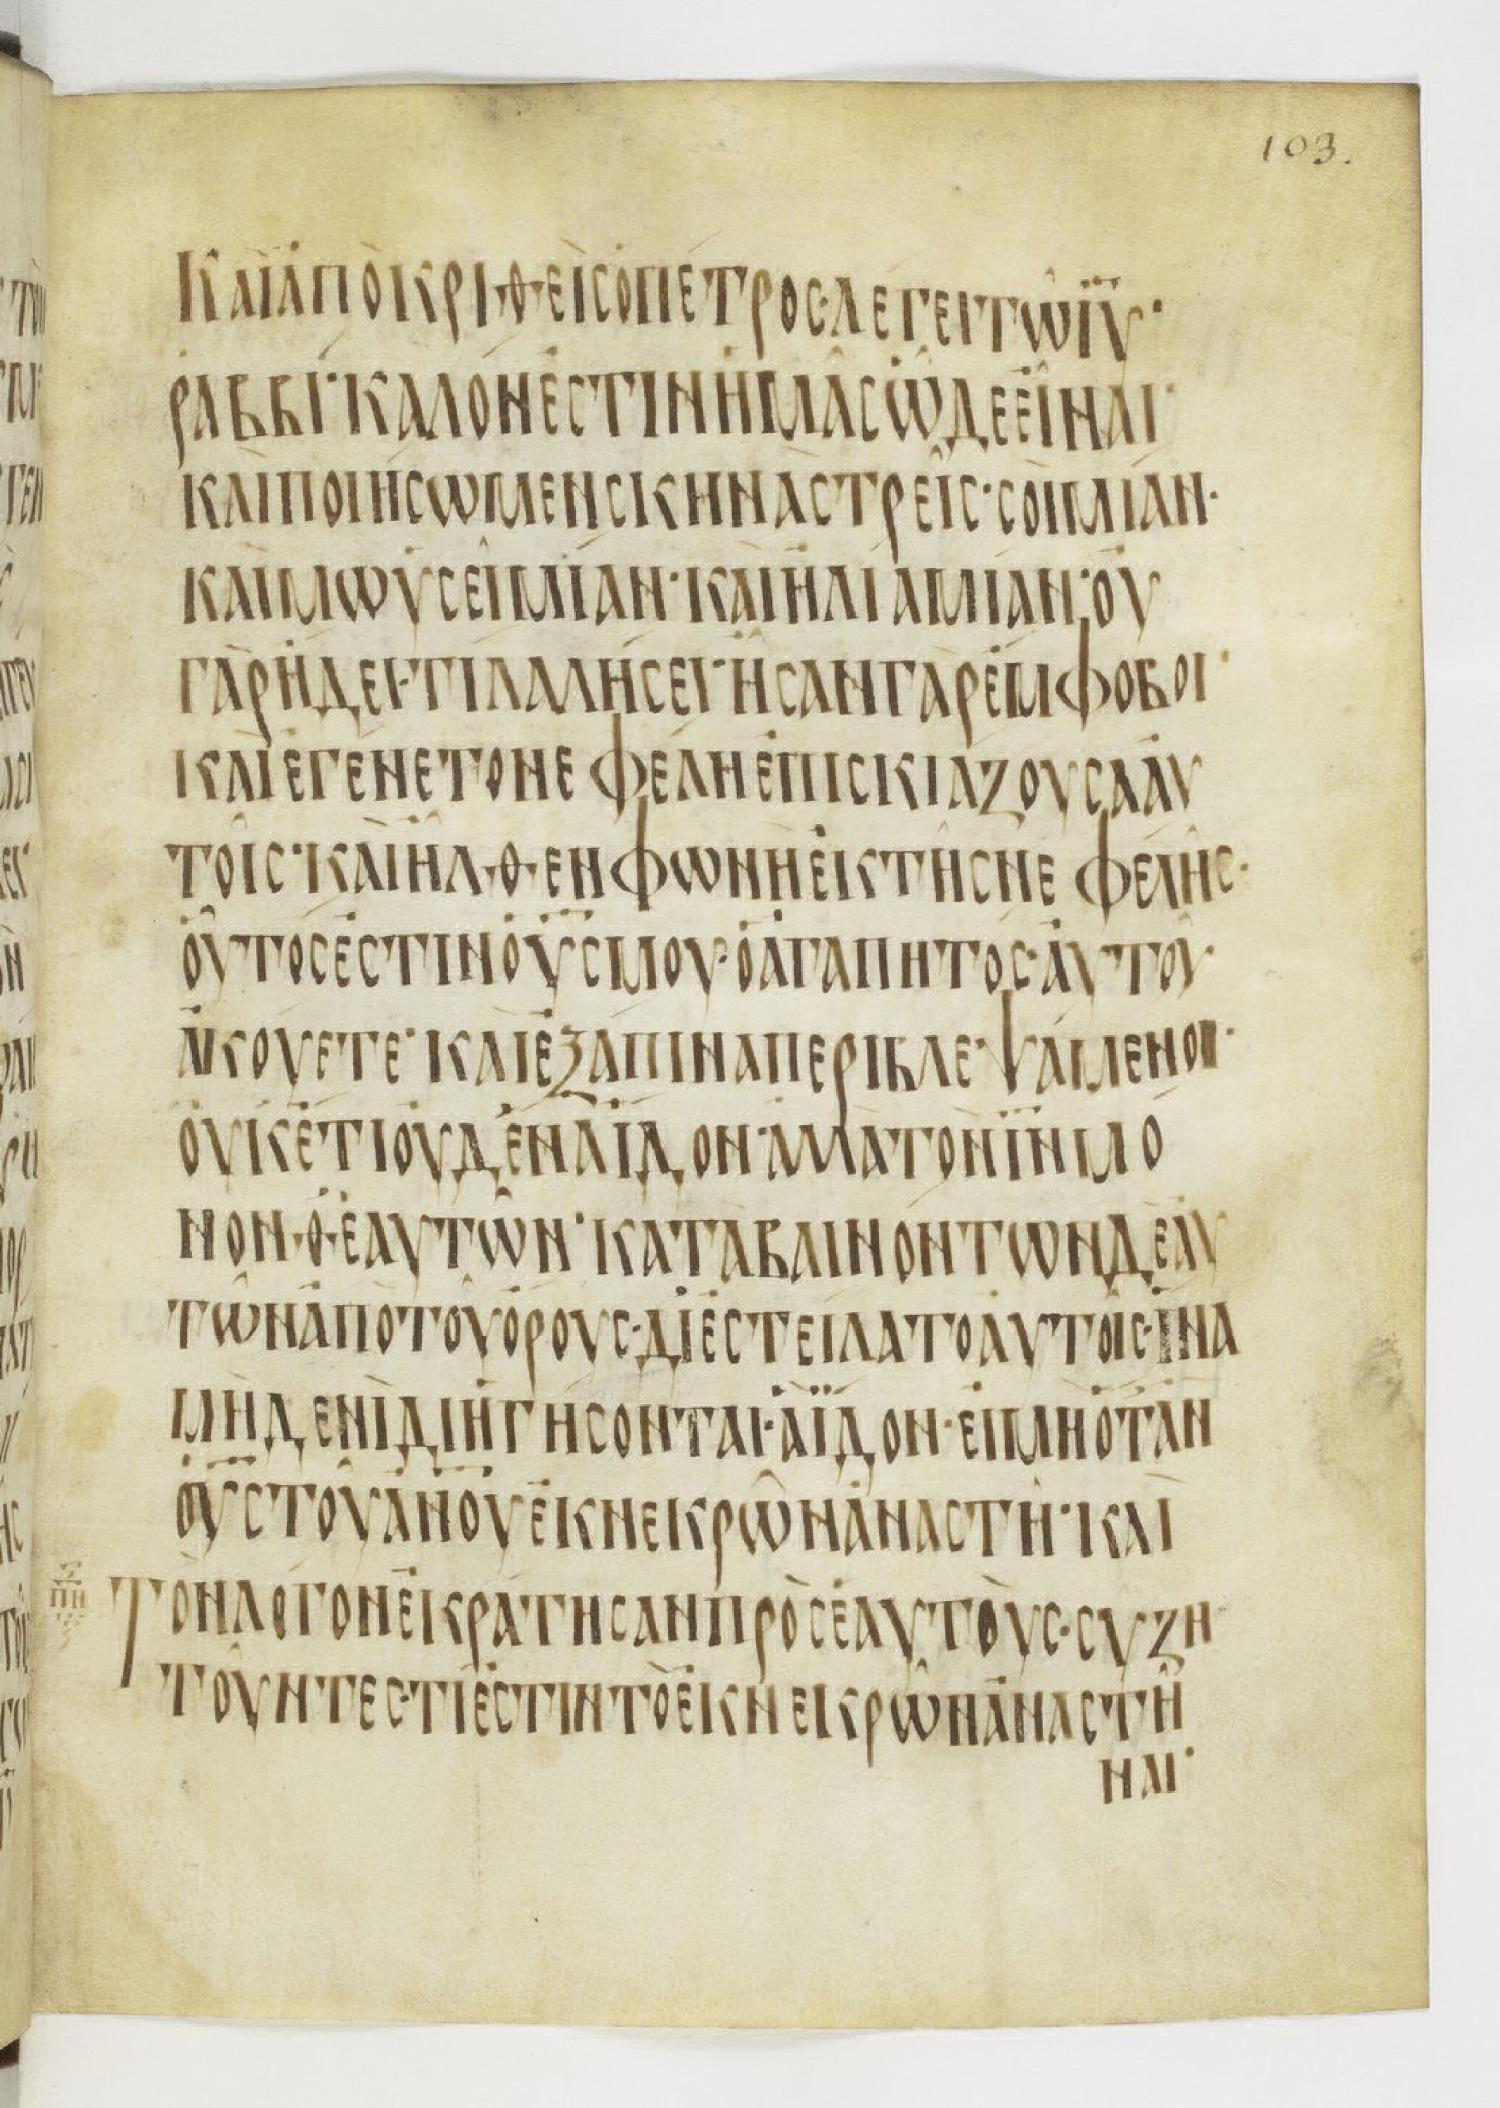 103.
ΚΑΙΑΠΟΚΡΙΘΕΙΣΟΠΕΤΡΟΣ·ΛΕΓΕΙΤΩΙΥ·
ΡΑΒΒΙ·ΚΑΛΟΝΕΣΤΙΝΗΜΑΣΩΔΕΕΙΝΑΙ·
ΚΑΙΠΟΙΗΣΩΜΕΝΣΚΗΝΑΣΤΡΕΙΣ·ΣΟΙΜΙΑΝ·
ΚΑΙΜΩΥΣΕΙΜΙΑΝ·ΚΑΙΗΛΙΑΜΙΑΝ·ΟΥ
ΓΑΡΗΔΕΙ·ΤΙΛΑΛΗΣΕΙ·ΗΣΑΝΓΑΡΕΜΦΟΒΟΙ·
ΚΑΙΕΓΕΝΕΤΟΝΕΦΕΛΗΕΠΙΣΚΙΑΖΟΥΣΑΑΥ
ΤΟΙΣ·ΚΑΙΗΛΘΕΝΦΩΝΗΕΚΤΗΣΝΕΦΕΛΗΣ·
ΟΥΤΟΣΕΣΤΙΝΟΥΣΜΟΥ·ΟΑΓΑΠΗΤΟΣ·ΑΥΤΟΥ·
ΑΚΟΥΕΤΕ·ΚΑΙΕΞΑΠΙΝΑΠΕΡΙΒΛΕΨΑΜΕΝΟΙ·
ΟΥΚΕΤΙΟΥΔΕΝΑΙΔΟΝ·ΑΛΛΑΤΟΝΙΝΜΟ
ΝΟΝ·ΘΕΑΥΤΩΝ·ΚΑΤΑΒΑΙΝΟΝΤΩΝΔΕΑΥ
ΤΩΝΑΠΟΤΟΥΟΡΟΥΣ·ΔΙΕΣΤΕΙΛΑΤΟΑΥΤΟΙΣ·ΙΝΑ
ΜΗΔΕΝΙΔΙΗΓΗΣΟΝΤΑΙ·ΑΙΔΟΝ·ΕΙΜΗΟΤΑΝ
ΟΥΣΤΟΥΑΝΟΥΕΚΝΕΚΡΩΝΑΝΑΣΤΗ·ΚΑΙ
ΠΗ ΤΟΝΛΟΓΟΝΕΚΡΑΤΗΣΑΝΠΡΟΣΕΑΥΤΟΥΣ·ΣΥΖΗ
ΤΟΥΝΤΕΣ·ΤΙΕΣΤΙΝΤΟΕΚΝΕΚΡΩΝΑΝΑΣΤΗ
ΝΑΙ·